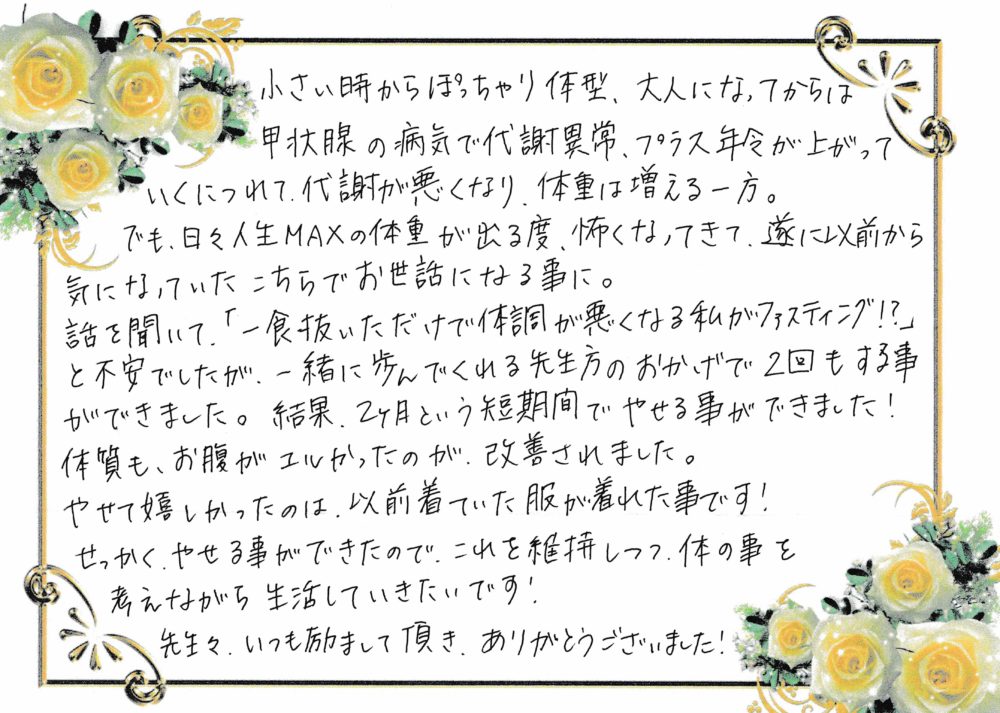 小さい時からぽっちゃり体型、大人になってからは
甲状腺の病気で代謝異常、プラス年令が上がって
いくにつれて、代謝が悪くなり、体重は増える一方。
でも、日々人生MAXの体重が出る度、怖くなってきて、遂に以前から
気になっていたこちらでお世話になる事に。
話を聞いて、「一食抜いただけで体調が悪くなる私がファスティング!?」
と不安でしたが、一緒に歩んでくれる先生方のおかげで2回もする事
ができました。結果、2ヶ月という短期間でやせる事ができました!
体質も、お腹がユルかったのが、改善されました。
やせて嬉しかったのは、以前着ていた服が着れた事です!
せっかく、やせる事ができたので、これを維持しつつ、体の事を
考えながら生活していきたいです!
先生々、いつも励まして頂き、ありがとうございました!